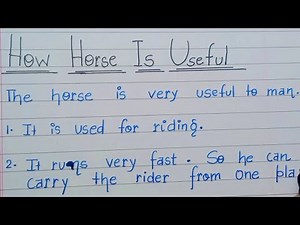 How Horse Is Useful
The horse is very useful to man.
1. It is used for riding.
2. It runs very fast. So he can
carry the rider from one